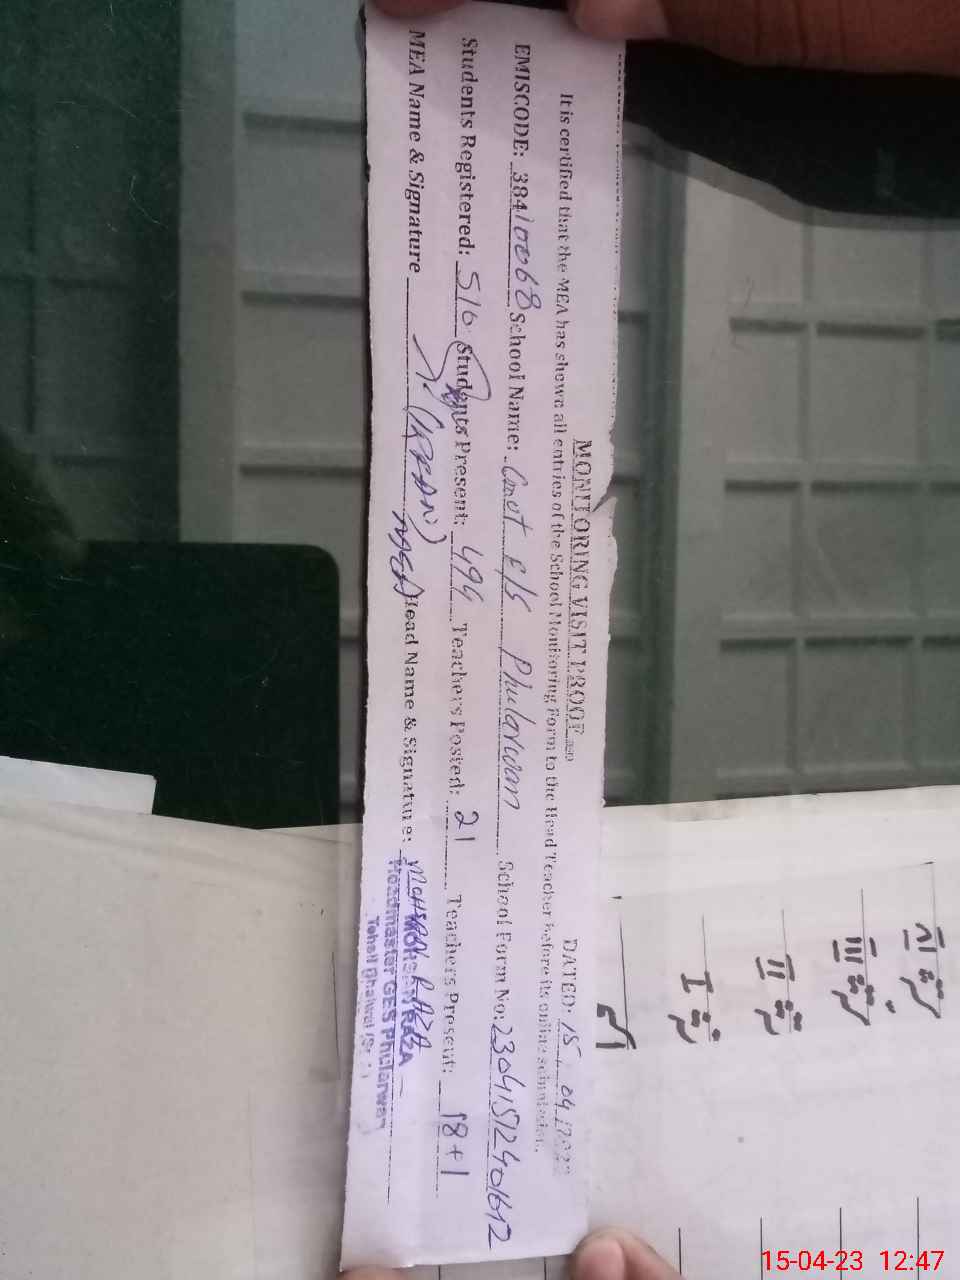 MONITORING VISIT PROOF
DATED: 15/04/2023
It is certified that the MEA has shown all entries of the School Monitoring Form to the Head Teacher before its online submission.
EMISCODE: 38410068 School Name: Govt E/S Phularwan School Form No: 23041512401612
Students Registered: 516 Students Present: 494 Teachers Posted: 21 Teachers Present: 18+1
MEA Name & Signature (IRFAN) MEA Head Name & Signature: MOHSAN RAZA
MOHSAN RAZA
Headmaster GES Phularwan
Tehsil Bhalwal
I
II
III
15-04-23 12:47